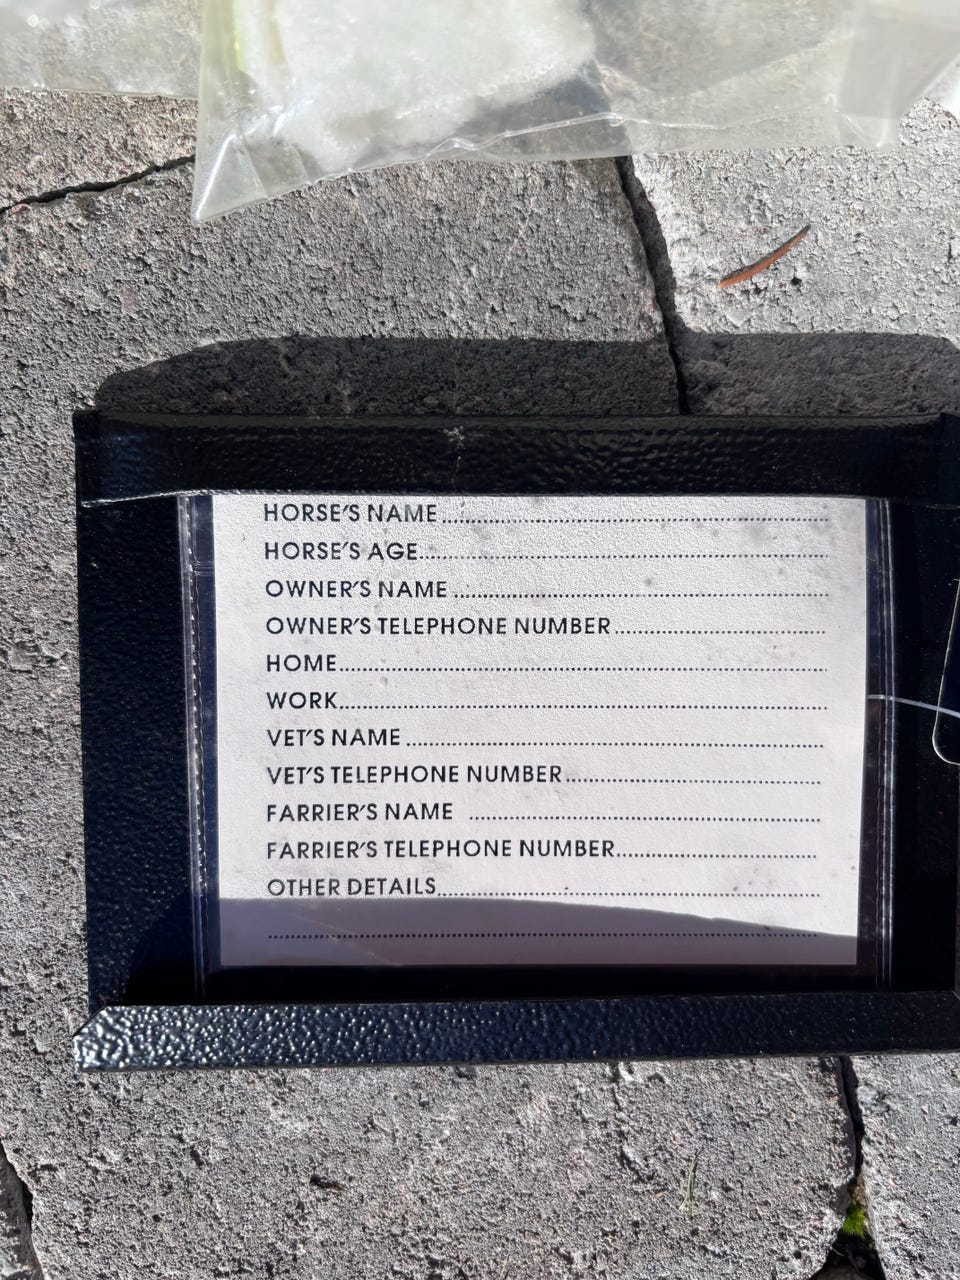 HORSE'S NAME
HORSE'S AGE
OWNER'S NAME
OWNER'S TELEPHONE NUMBER
HOME
WORK
VET'S NAME
VET'S TELEPHONE NUMBER
FARRIER'S NAME
FARRIER'S TELEPHONE NUMBER
OTHER DETAILS